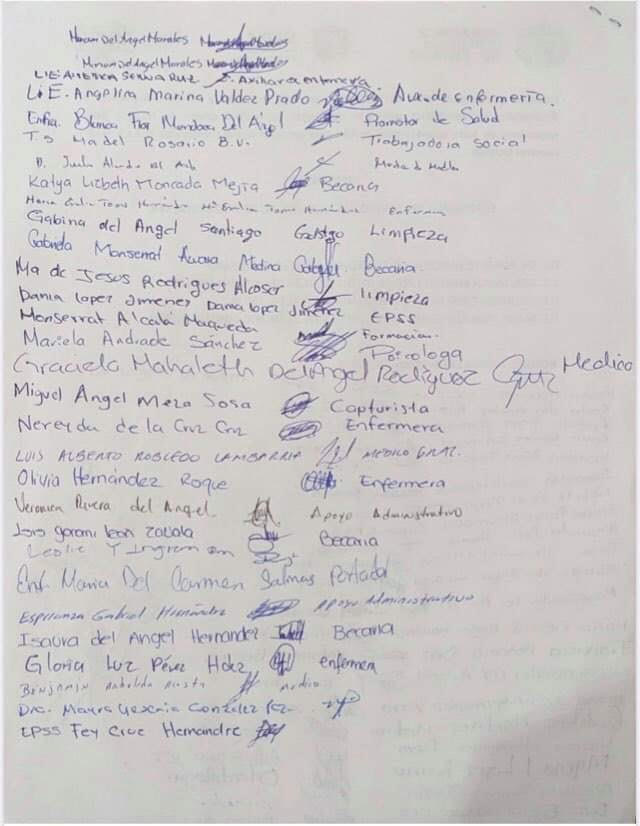 Miriam Del Angel Morales
Miriam Del Angel Morales
LIE. America Serna Ruiz Auxiliar enfermera
L.E. Angelina Marina Valdez Prado Aux. de enfermería.
Enfra. Blanca Flor Mendoza Del Angel Promotor de Salud
T.S Ma del Rosario B.V. Trabajadora Social
Katya Lizbeth Moncada Mejia Becaria
Maria Torres Hernández Torres Hernández Enfermera
Gabina del Angel Santiago Limpieza
Gabriela Monserrat Medina Becaria
Ma de Jesus Rodrigues Alcoser
limpieza
Dania lopez Jimenez Dania lopez Jimenez EPSS
Monserrat Alcalá Maqueda Formacion
Mariela Andrade Sánchez Psicologa
Graciela Mahaleth Del Angel Rodriguez Medico
Miguel Angel Meza Sosa Capturista
Nereyda de la Cruz Cruz Enfermera
LUIS ALBERTO ROBLEDO LAMBARRIA MEDICO GRAL.
Olivia Hernández Roque Enfermera
Veronica Rivera del Angel Apoyo Administrativo
leon zavala Becaria
Leslie Y
Enf. Maria Del Carmen Salinas Portada
Esperanza Gabriel Hernández Apoyo Administrativo
Isaura del Angel Hernandez Becaria
Gloria Luz Pérez Hdez enfermera
Benjamin Acosta Medico
Dra. Mayra Yesenia Gonzalez
EPSS Fey Cruz Hernandez